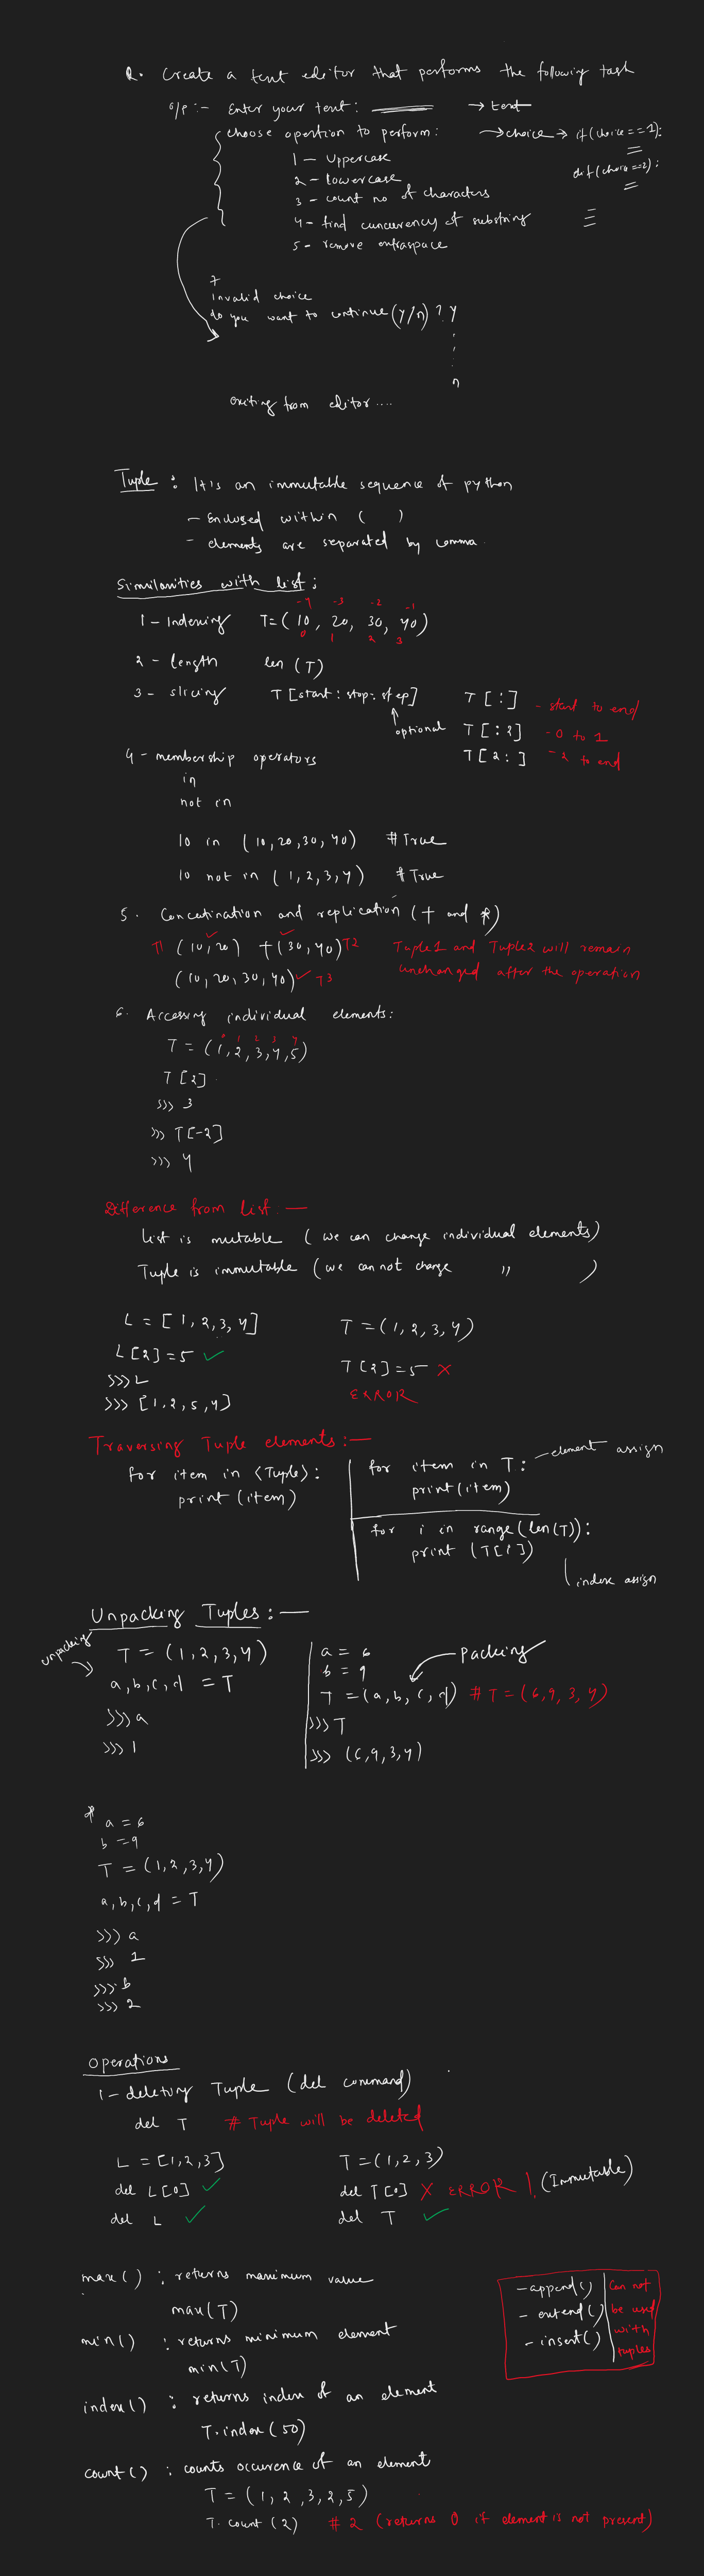 Q. Create a text editor that performs the following task
O/P :- Enter your text: → text
choose opertion to perform: → choice → if(choice == 1):
1 - Uppercase
elif(choice==2):
2 - lowercase
3 - count no of characters
4 - find cuncurrency of substring
5 - remove extraspace
7
invalid choice
do you want to continue (y/n) ? y
n
exiting from editor....
Tuple : It's an immutable sequence of python
- Enclosed within ( )
- elements are separated by comma.
Similarities with list :
-4 -3 -2 -1
1 - Indexing T = (10, 20, 30, 40)
0 1 2 3
2 - length len (T)
3 - slicing T [start : stop : step] T [:] - start to end
optional T [:2] - 0 to 1
T [2:] - 2 to end
4 - membership operators
in
not in
10 in (10,20,30,40) # True
10 not in (1,2,3,4) # True
5. Concatination and replication (+ and *)
T1 (10,20) + (30,40) T2 Tuple1 and Tuple2 will remain
(10,20,30,40) T3 unchanged after the operation
6. Accessing individual elements:
0 1 2 3 4
T = (1,2,3,4,5)
T [2]
>>> 3
>>> T[-2]
>>> 4
Difference from list —
List is mutable (we can change individual elements)
Tuple is immutable (we can not change " )
L = [1,2,3,4] T = (1,2,3,4)
L[2]=5 ✓ T[2]=5 X
>>> L ERROR
>>> [1,2,5,4]
Traversing Tuple elements :—
for item in <Tuple>: for item in T: — element assign
print(item) print(item)
for i in range(len(T)):
print (T[i])
index assign
Unpacking Tuples :—
unpacking T = (1,2,3,4) a = 6 packing
a,b,c,d = T b = 9
>>> a T = (a,b,c,d) # T = (6,9,3,4)
>>> 1 >>> T
>>> (6,9,3,4)
* a = 6
b = 9
T = (1,2,3,4)
a,b,c,d = T
>>> a
>>> 1
>>> b
>>> 2
Operations
1 - deleting Tuple (del command)
del T # Tuple will be deleted
L = [1,2,3] T = (1,2,3)
del L[0] ✓ del T[0] X ERROR ! (Immutable)
del L ✓ del T ✓
max() : returns maximum value
max(T)
min() : returns minimum element
min(T)
- append() Can not
- extend() be used
- insert() with
tuples
index() : returns index of an element
T.index(50)
count() : counts occurence of an element
T = (1,2,3,2,5)
T.count(2) # 2 (returns 0 if element is not present)